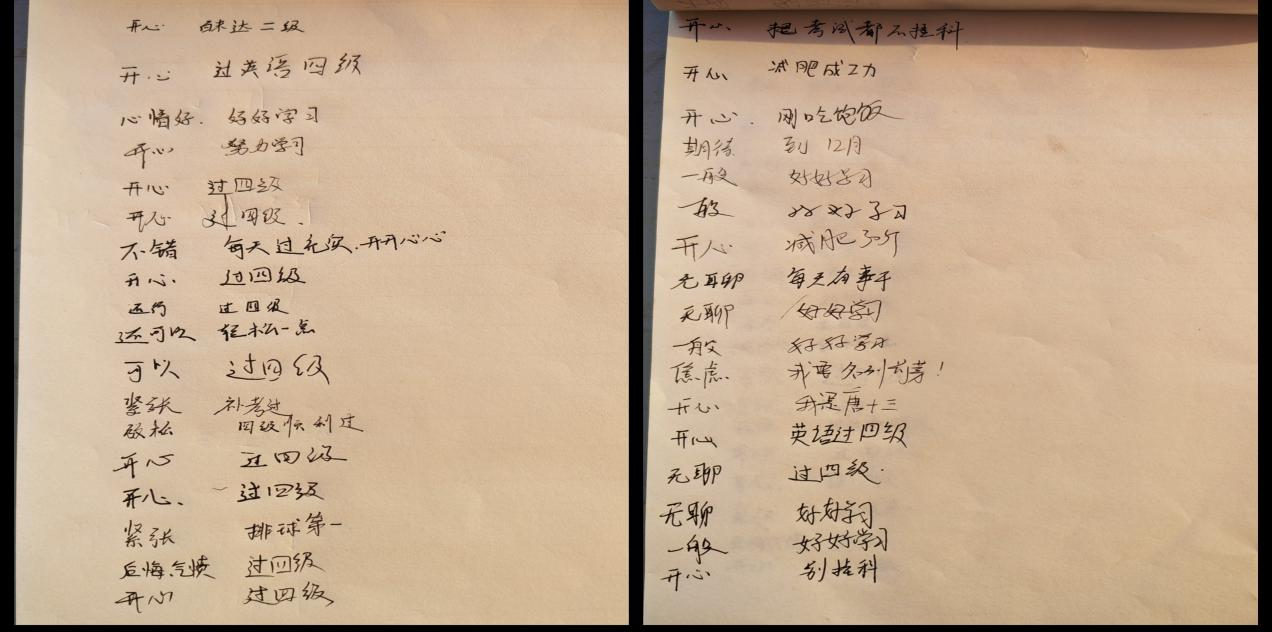 开心 达二级
开心 过英语四级
心情好. 好好学习
开心 努力学习
开心 过四级
开心 过四级.
不错 每天过充实,开开心心
开心. 过四级
还行 过四级
还可以 轻松一点
可以 过四级
紧张 补考过
放松 四级顺利过
开心 过四级
开心. 过四级
紧张 排球第一
后悔,气愤 过四级
开心 过四级
开心 把考试都不挂科
开心 减肥成功
开心. 刚吃饱饭
期待 到12月
一般 好好学习
一般 好好学习
开心 减肥30斤
无聊 每天有事干
无聊 好好学习
一般 好好学习
焦虑 我要名列前茅!
开心 我是唐十三
开心 英语过四级
无聊 过四级.
无聊 好好学习
一般 好好学习
开心 别挂科